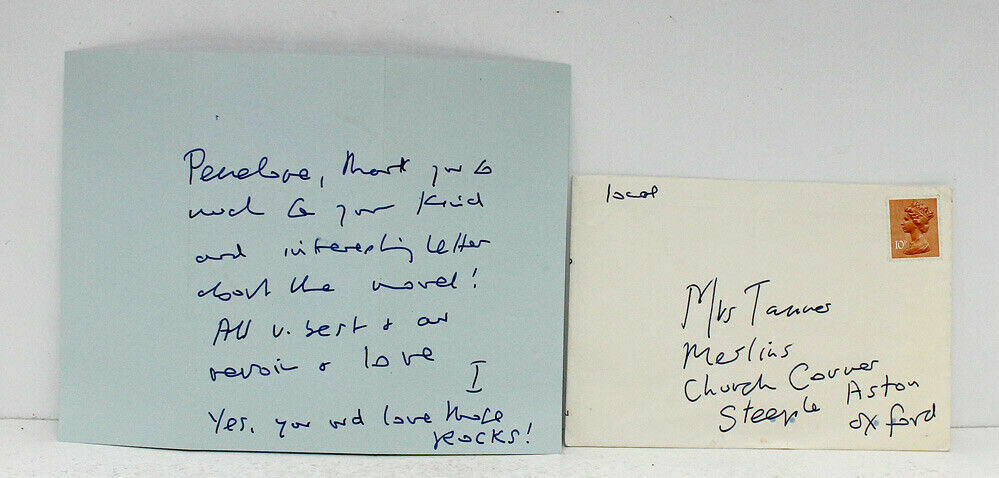 Penelope, thank you so
much for your kind
and interesting letter
about the novel!
All v. best & au
revoir & love
I
Yes, you wd love those
ROCKS!
local
10P
Mrs Tanner
Merlins
Church Corner
Steeple Aston
Oxford